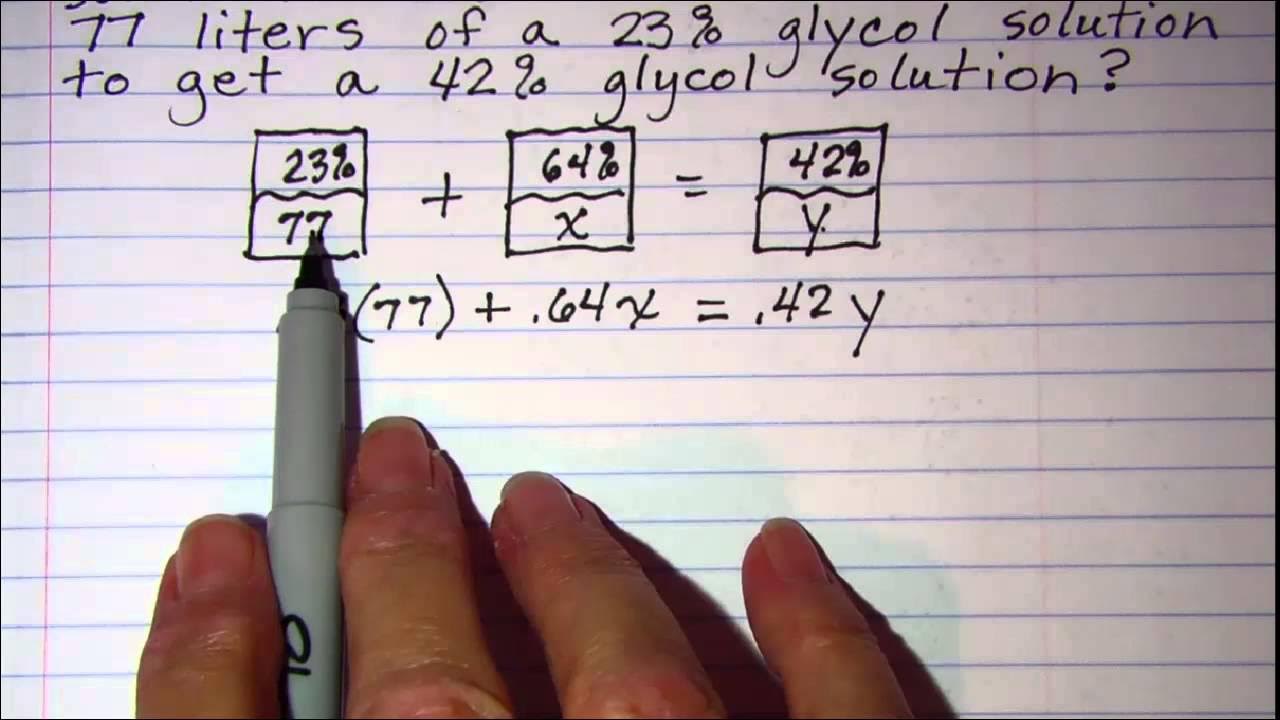 77 liters of a 23% glycol solution
to get a 42% glycol solution?
23% 64% 42%
+ =
77 x y
(77) + .64x = .42y